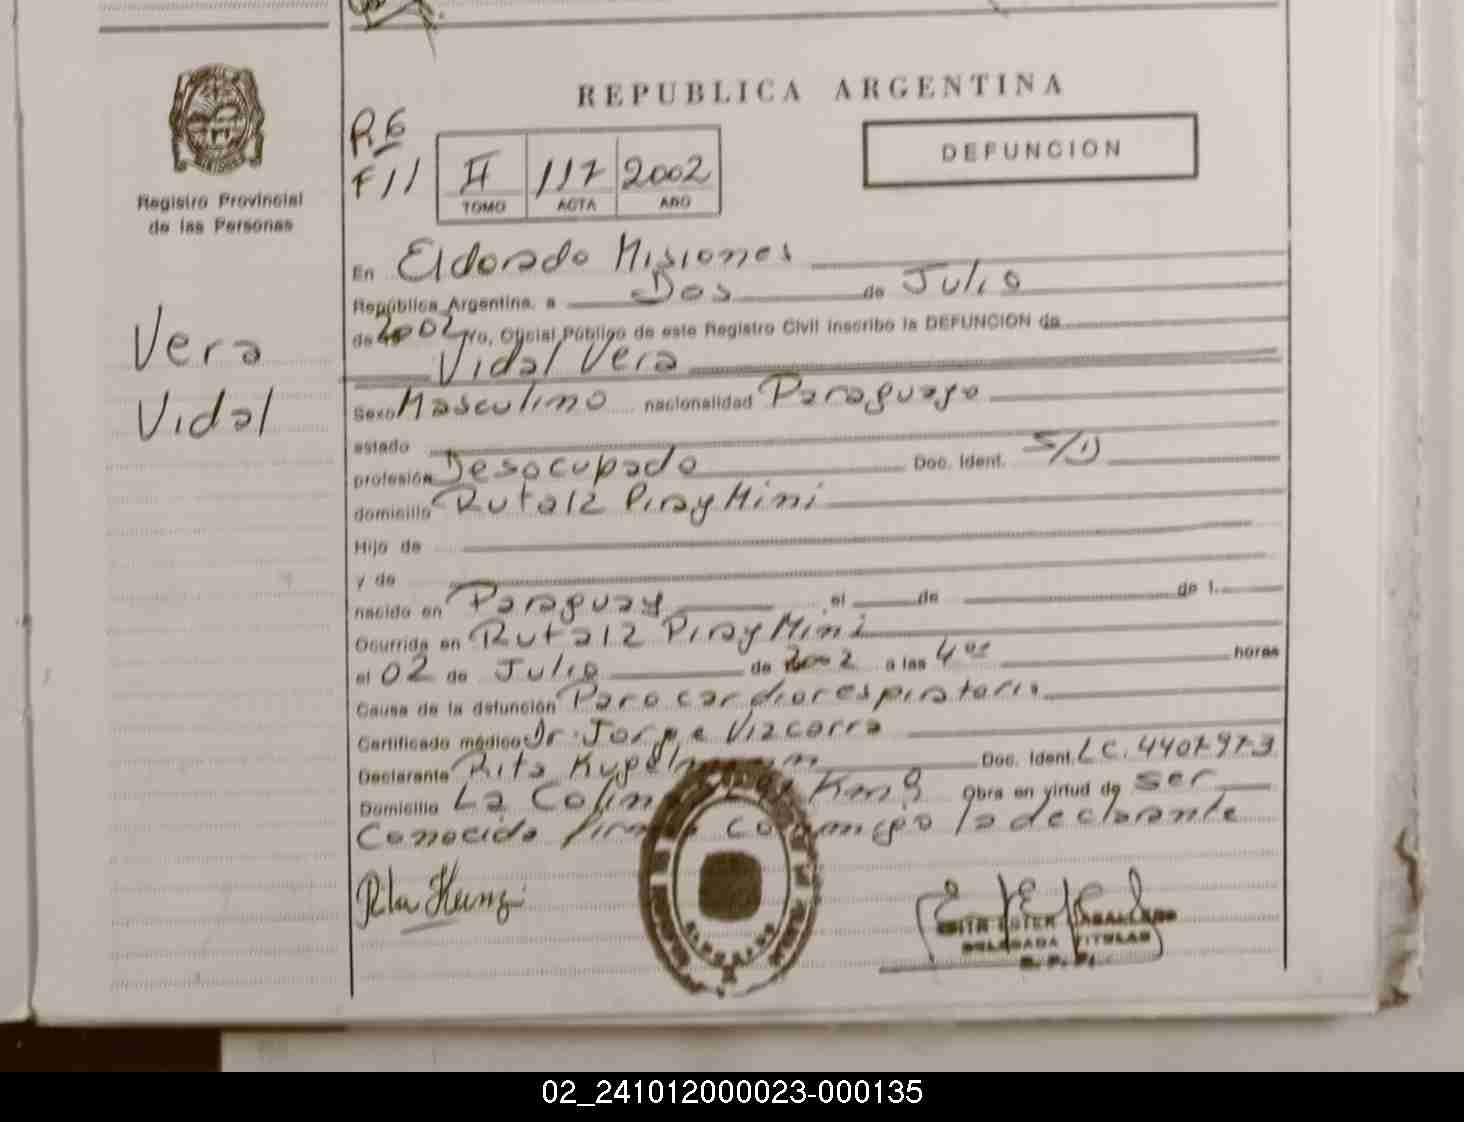 REPUBLICA ARGENTINA
DEFUNCION
R6
F11
II 117 2002
TOMO ACTA AÑO
Registro Provincial
de las Personas
Vera
Vidal
En Eldorado Misiones
República Argentina, a Dos de Julio
de 2002 Yo, Oficial Público de este Registro Civil inscribo la DEFUNCION de
Vidal Vera
Sexo Masculino nacionalidad Paraguayo
estado
profesión Desocupado Doc. Ident. S/D
domicilio Ruta 12 Piray Mini
Hijo de
y de
nacido en Paraguay el de de 1.
Ocurrida en Ruta 12 Piray Mini
el 02 de Julio de 2002 a las 4 horas
Causa de la defunción Paro cardiorespiratorio
Certificado médico Dr. Jorge Vizcarra
Declarante Rita Doc. Ident. L.C. 4407973
Domicilio La Colina Km 9 Obra en virtud de ser
Conocida firma conmigo la declarante
Rita
ESTER CABALLERO
DELEGADA TITULAR
02_241012000023-000135